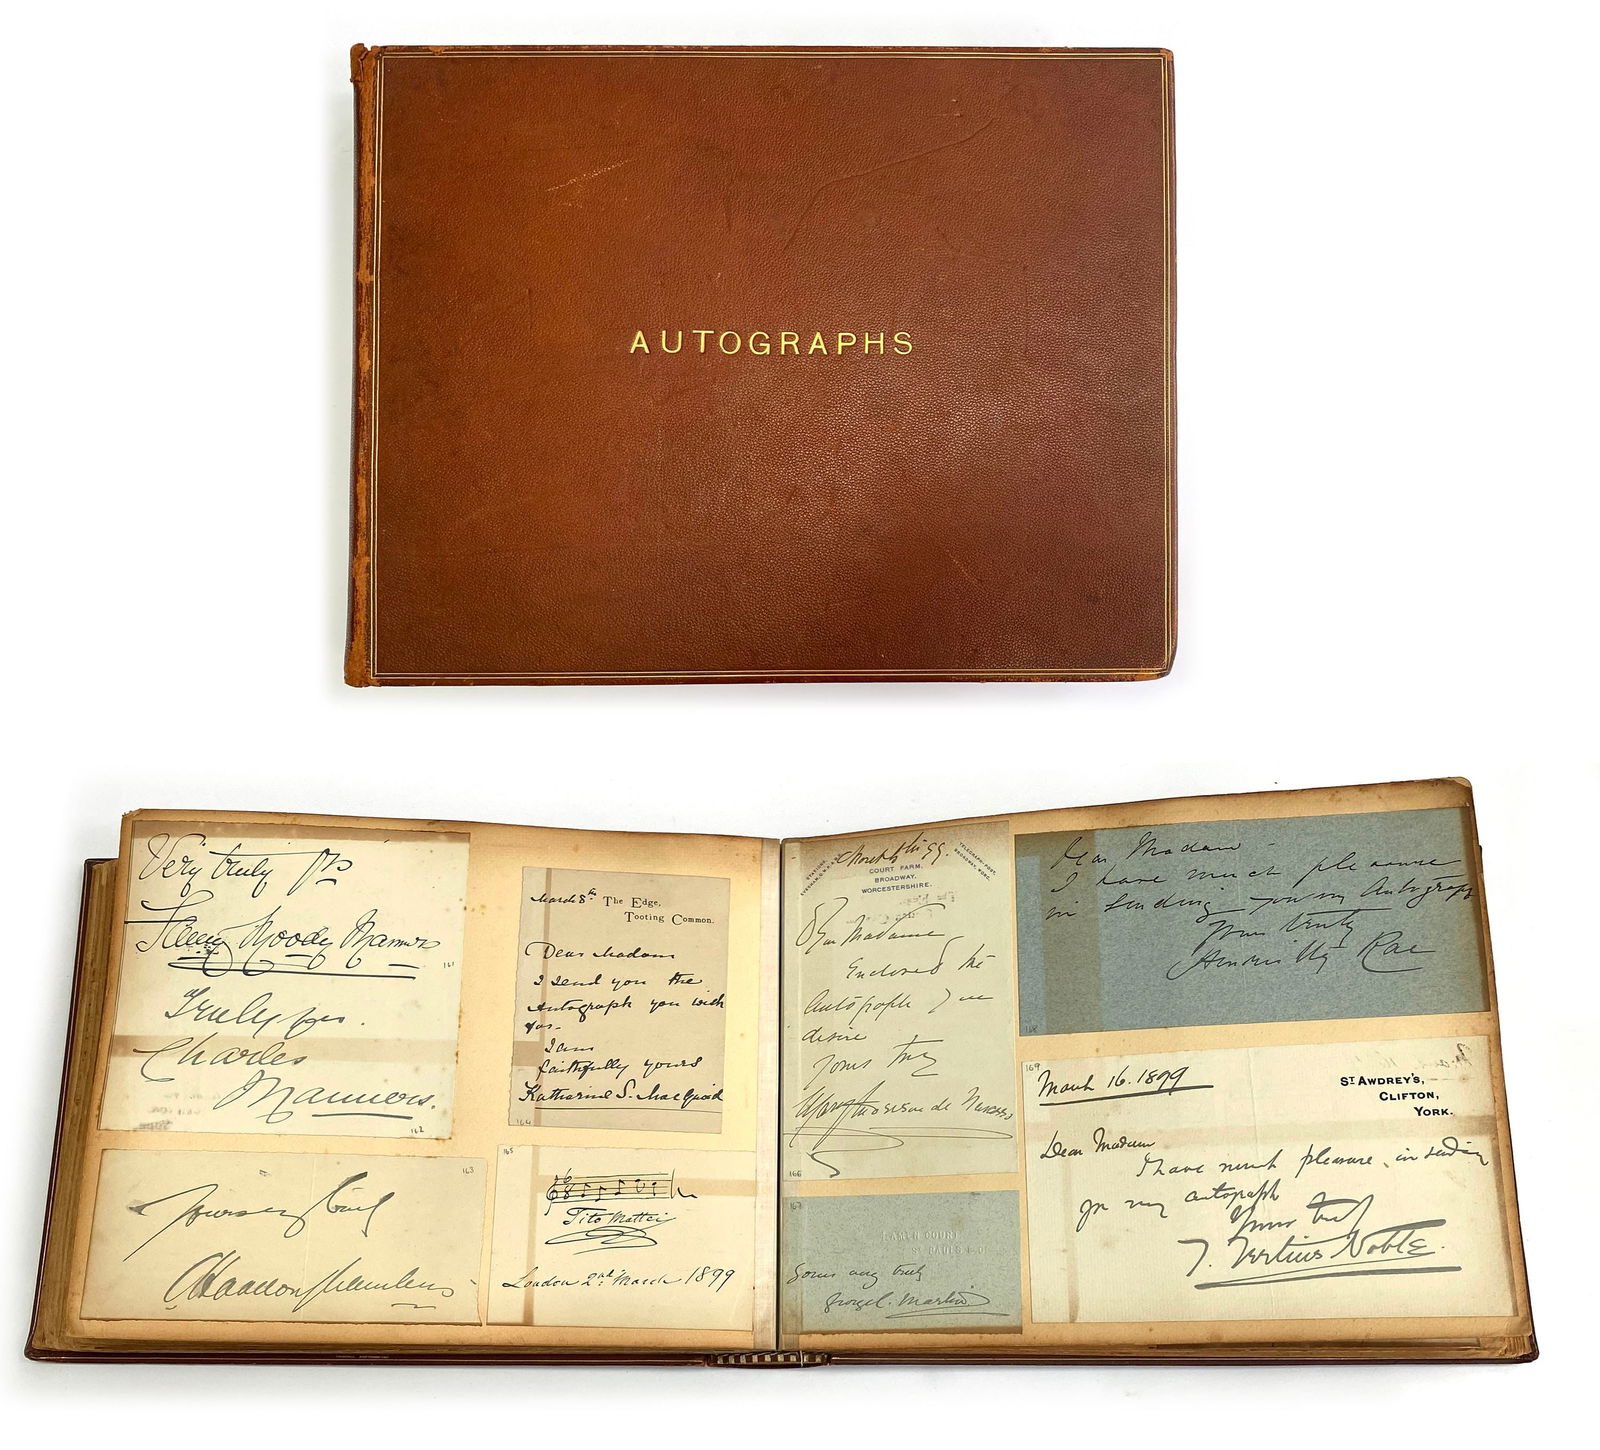 AUTOGRAPHS
Very truly yrs
Fanny Moody Manners
161
Truly yrs.
Charles
Manners.
162
163
Yours sincerely
March 8th
The Edge,
Tooting Common.
Dear Madam
I send you the
Autograph you wish
for-
I am
faithfully yours
Katharine S. Macquoid
164
165
6
8
Tito Mattei
London 2nd March 1899
March 99.
COURT FARM,
BROADWAY,
WORCESTERSHIRE.
Dear Madame
Enclosed the
Autograph you
desire
Yours truly
Mary Anderson de Navarro
166
167
AMEN COURT
ST PAULS E.C.
Yours very truly
George C. Martin
Dear Madam
I have much pleasure
in sending you my Autograph
Yours truly
Henrietta Rae
168
169
March 16. 1899
ST AWDREY'S,
CLIFTON,
YORK.
Dear Madam
I have much pleasure in sending
you my autograph
Yours truly
T. Tertius Noble.